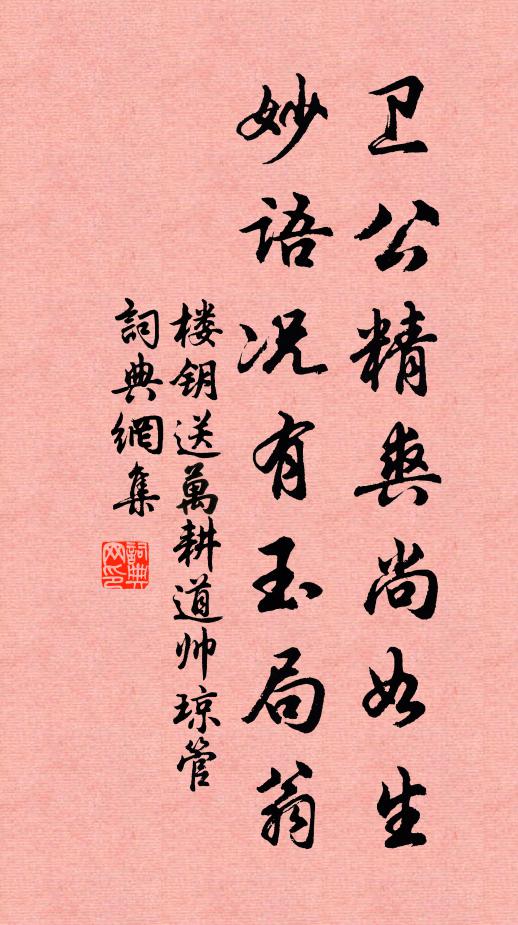 卫公精爽尚如生
妙语况有玉局翁
楼钥送萬耕道帅琼管
詞典網集
詞典网印